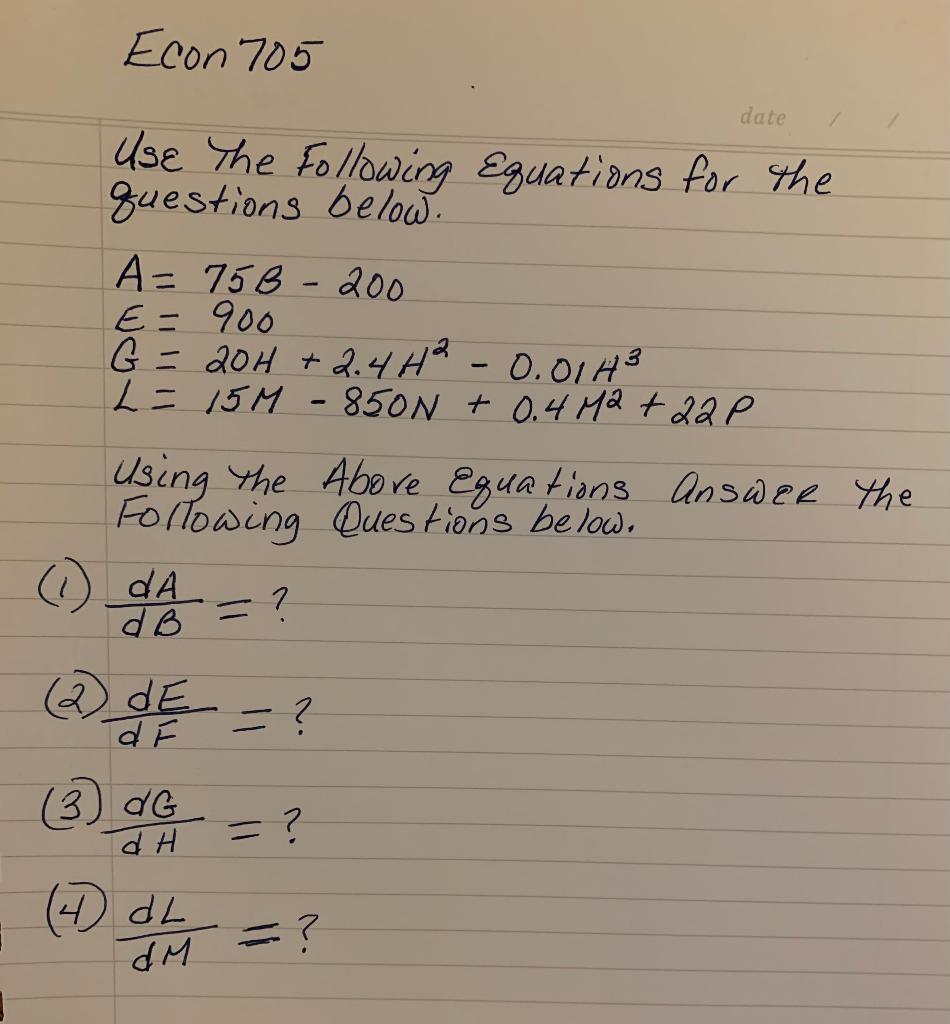 Econ 705
date / /
Use The Following Equations for the
questions below.
A = 75B - 200
E = 900
G = 20H + 2.4H² - 0.01H³
L = 15M - 850N + 0.4M² + 22P
Using the Above Equations Answer the
Following Questions below.
(1) dA/dB = ?
(2) dE/dF = ?
(3) dG/dH = ?
(4) dL/dM = ?